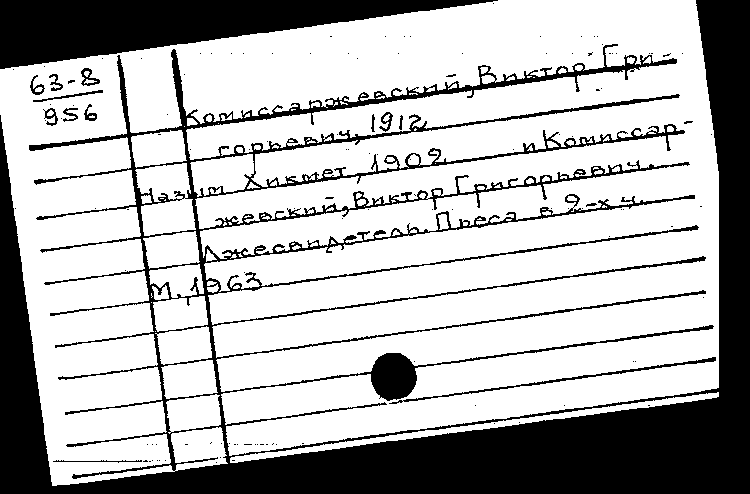 63-8
956
Комиссаржевский, Виктор Гри-
горьевич, 1912
Назым Хикмет, 1902 и Комиссар-
жевский, Виктор Григорьевич.
Лжесвидетель. Пьеса в 2-х ч.
М., 1963.